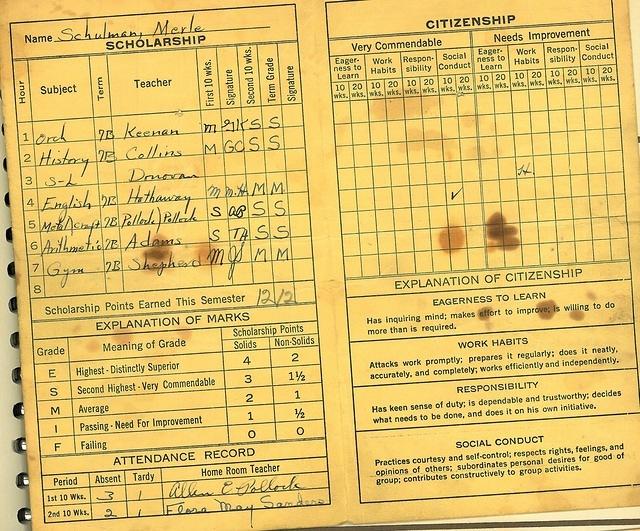 Name Schulman, Merle
SCHOLARSHIP
Hour Subject Term Teacher First 10 wks. Signature Second 10 wks. Term Grade Signature
1 Orch 7B Keenan M GK S S
2 History 7B Collins M GC S S
3 S-L Donovan
4 English 7B Hathaway M M.H M M
5 Metal/craft 7B Pollock/Pollock S S S
6 Arithmetic 7B Adams S TA S S
7 Gym 7B Shepherd M M M
8
Scholarship Points Earned This Semester 12/2
EXPLANATION OF MARKS
Grade Meaning of Grade Scholarship Points
Solids Non-Solids
E Highest - Distinctly Superior 4 2
S Second Highest - Very Commendable 3 1½
M Average 2 1
I Passing - Need For Improvement 1 ½
F Failing 0 0
ATTENDANCE RECORD
Period Absent Tardy Home Room Teacher
1st 10 Wks. 3 1 Allen E Pollock
2nd 10 Wks. 2 1 Flora May Sanders
CITIZENSHIP
Very Commendable Needs Improvement
Eagerness to Learn Work Habits Responsibility Social Conduct Eagerness to Learn Work Habits Responsibility Social Conduct
10 wks. 20 wks. 10 wks. 20 wks. 10 wks. 20 wks. 10 wks. 20 wks. 10 wks. 20 wks. 10 wks. 20 wks. 10 wks. 20 wks. 10 wks. 20 wks.
H
✓
EXPLANATION OF CITIZENSHIP
EAGERNESS TO LEARN
Has inquiring mind; makes effort to improve; is willing to do
more than is required.
WORK HABITS
Attacks work promptly; prepares it regularly; does it neatly,
accurately, and completely; works efficiently and independently.
RESPONSIBILITY
Has keen sense of duty; is dependable and trustworthy; decides
what needs to be done, and does it on his own initiative.
SOCIAL CONDUCT
Practices courtesy and self-control; respects rights, feelings, and
opinions of others; subordinates personal desires for good of
group; contributes constructively to group activities.